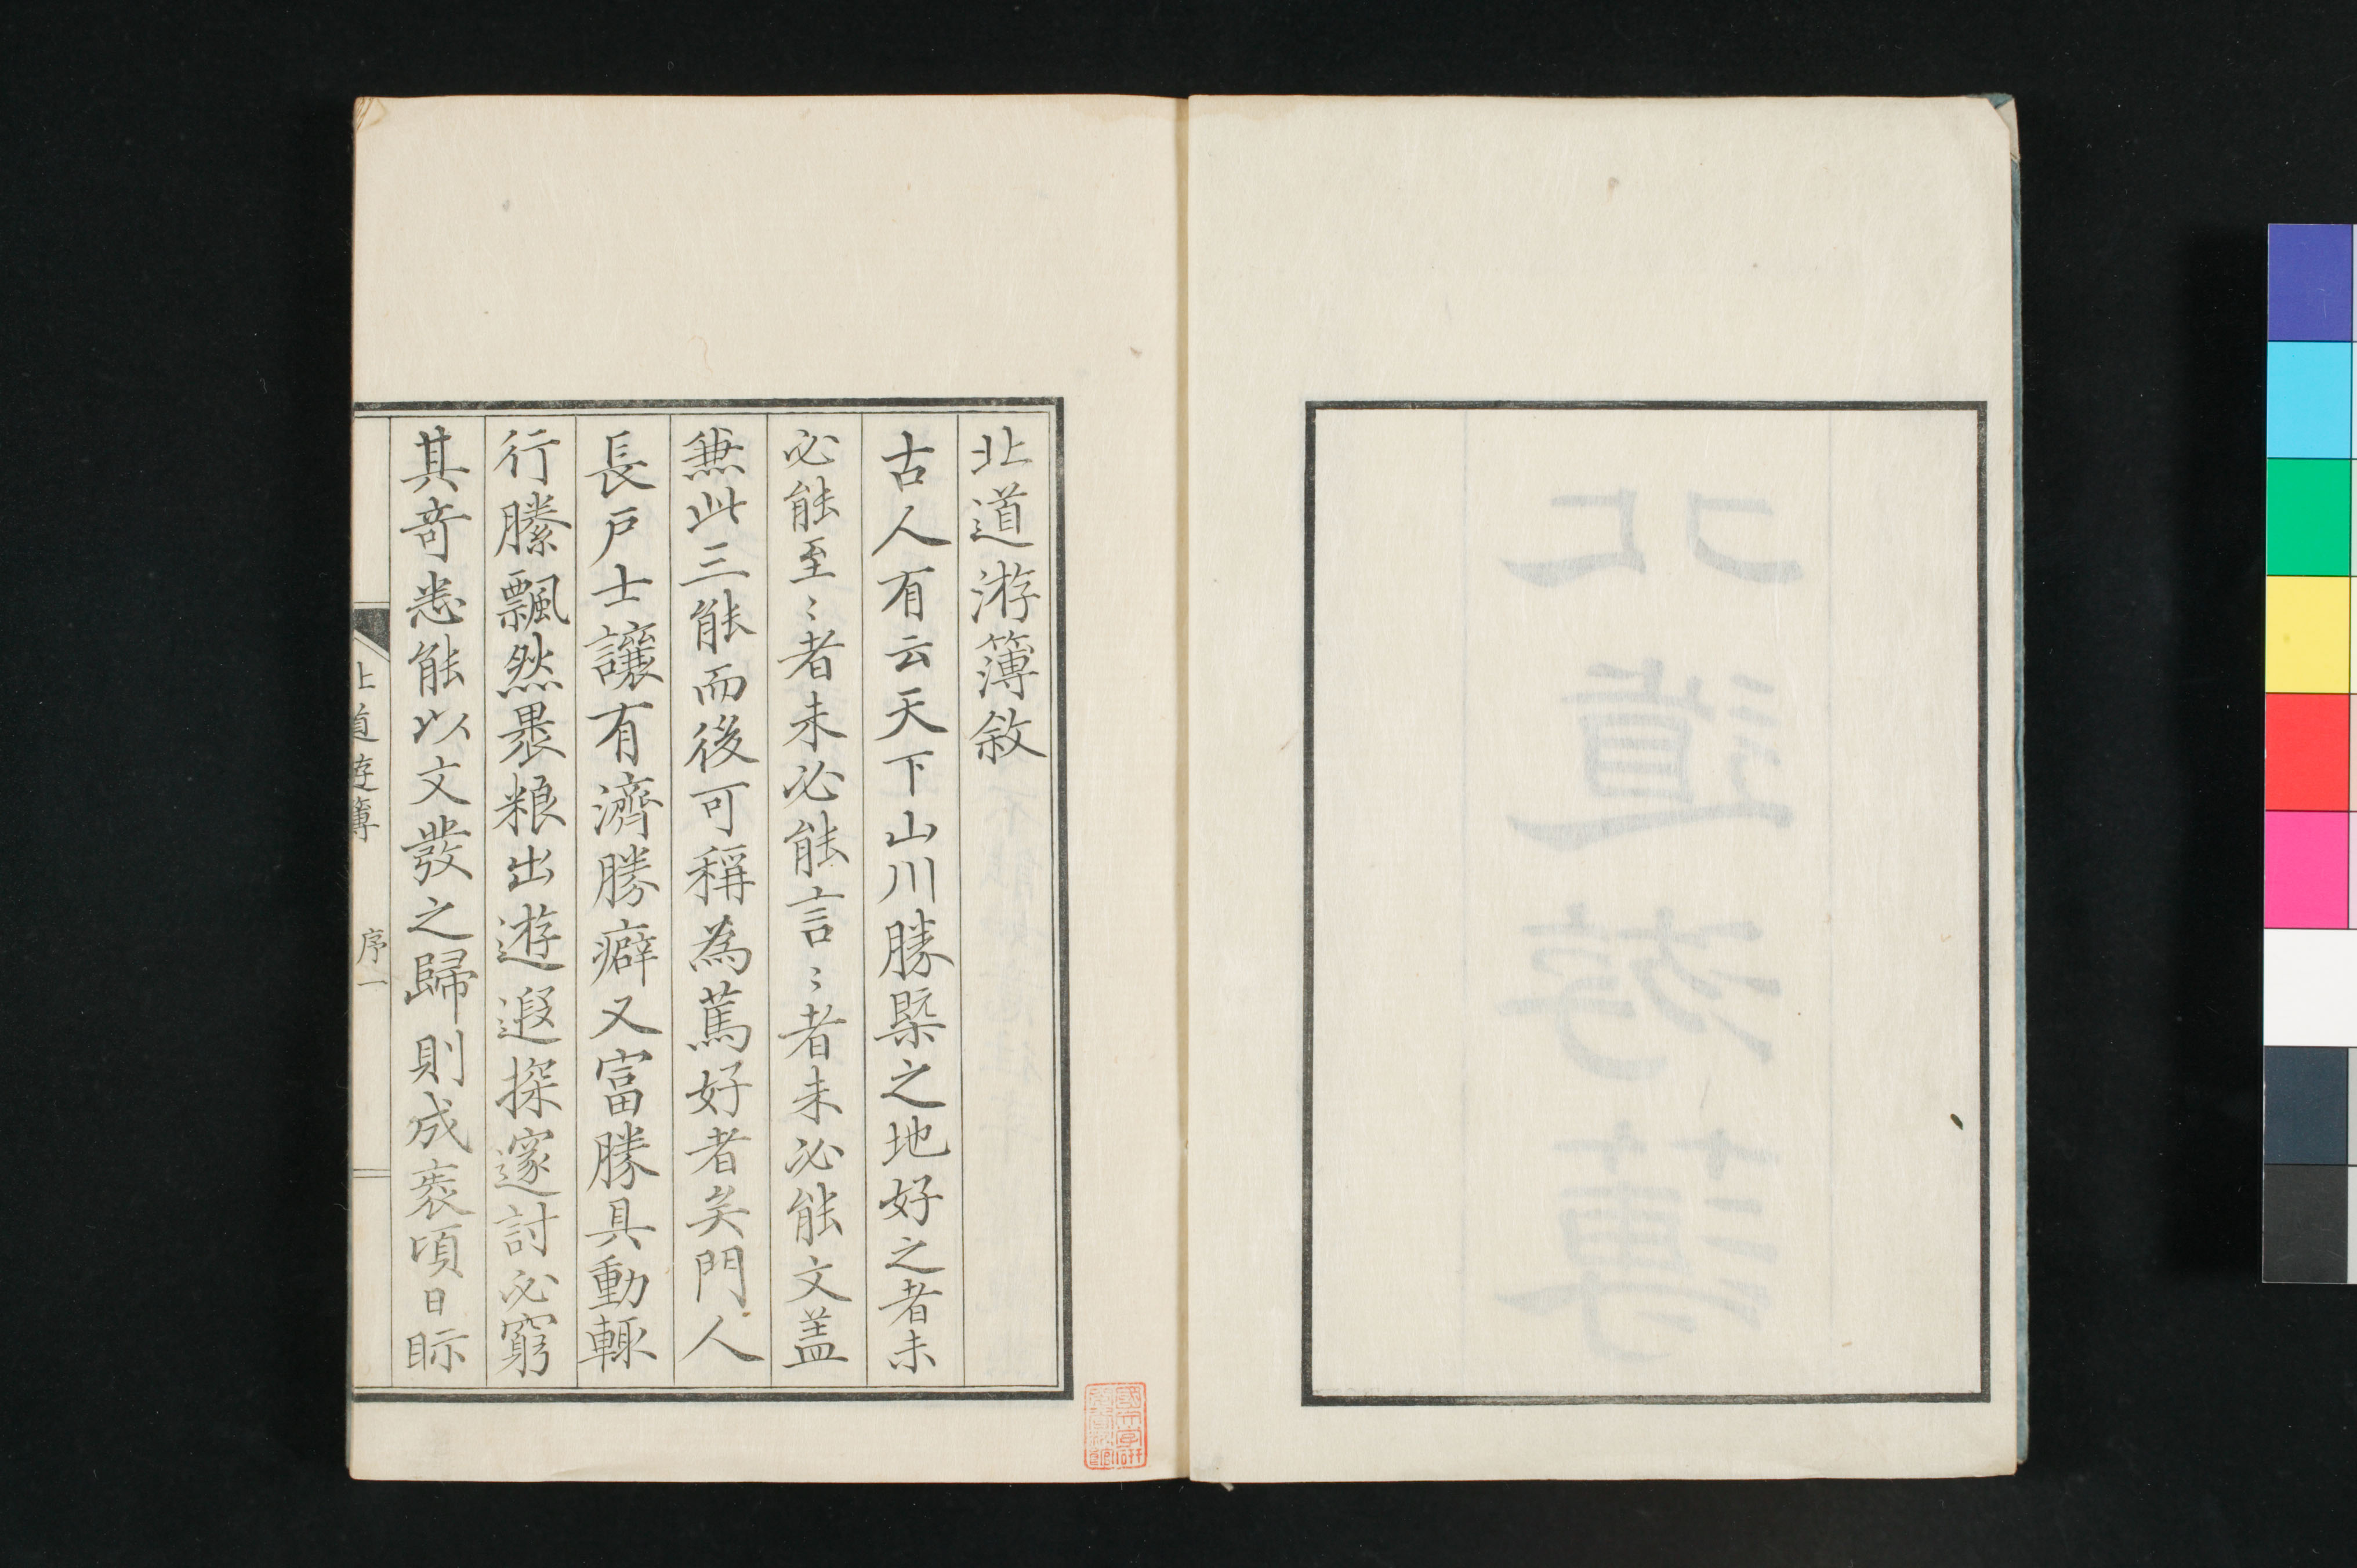 北道游簿敘
古人有云天下山川勝槩之地好之者未
必能至〻者未必能言〻者未必能文盖
兼此三能而後可稱為篤好者矣門人
長戸士讓有濟勝癖又富勝具動輒
行縢飄然褁粮出遊遐探邃討必窮
其奇悉能以文發之歸則成袠頃日眎
北道游簿
序一